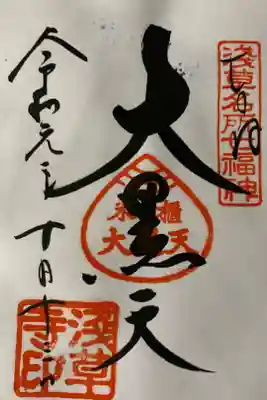 奉拝
浅草名所七福神
大黒天
米櫃
大天
令和元年十月十二日
浅草
寺印